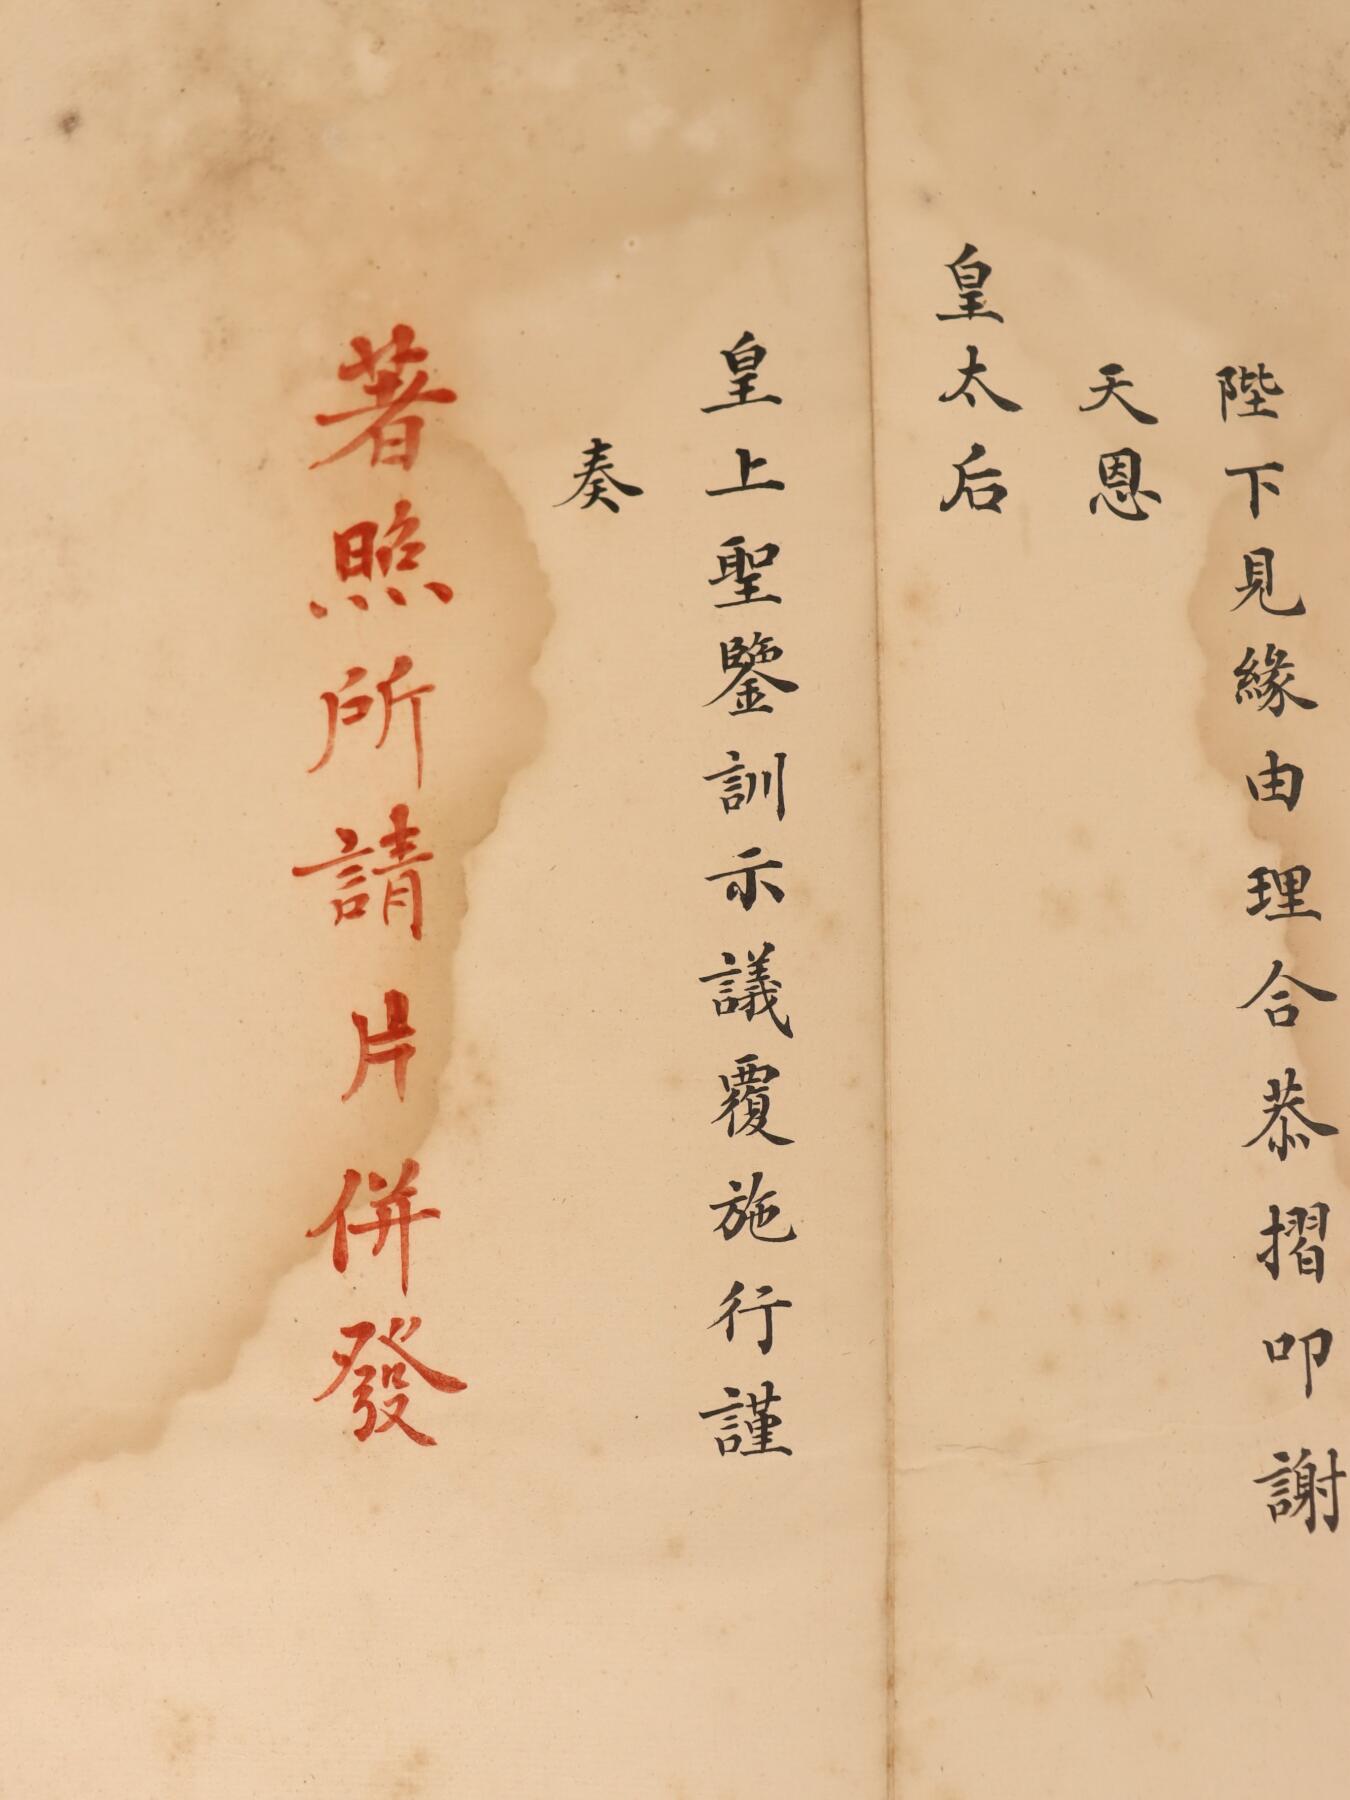 陛下見緣由理合恭摺叩謝
天恩
皇太后
皇上聖鑒訓示議覆施行謹
奏
著照所請片併發